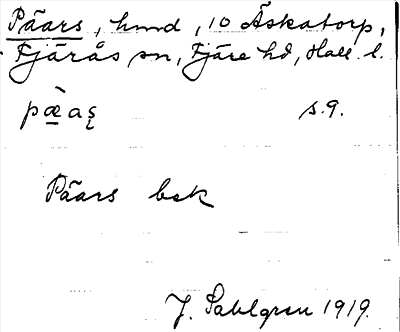 Päars, hmd, 10 Äskatorp,
Fjärås sn, Fjäre hd, Hall. l.
s. 9.
Päars bek
J. Sahlgren 1919.